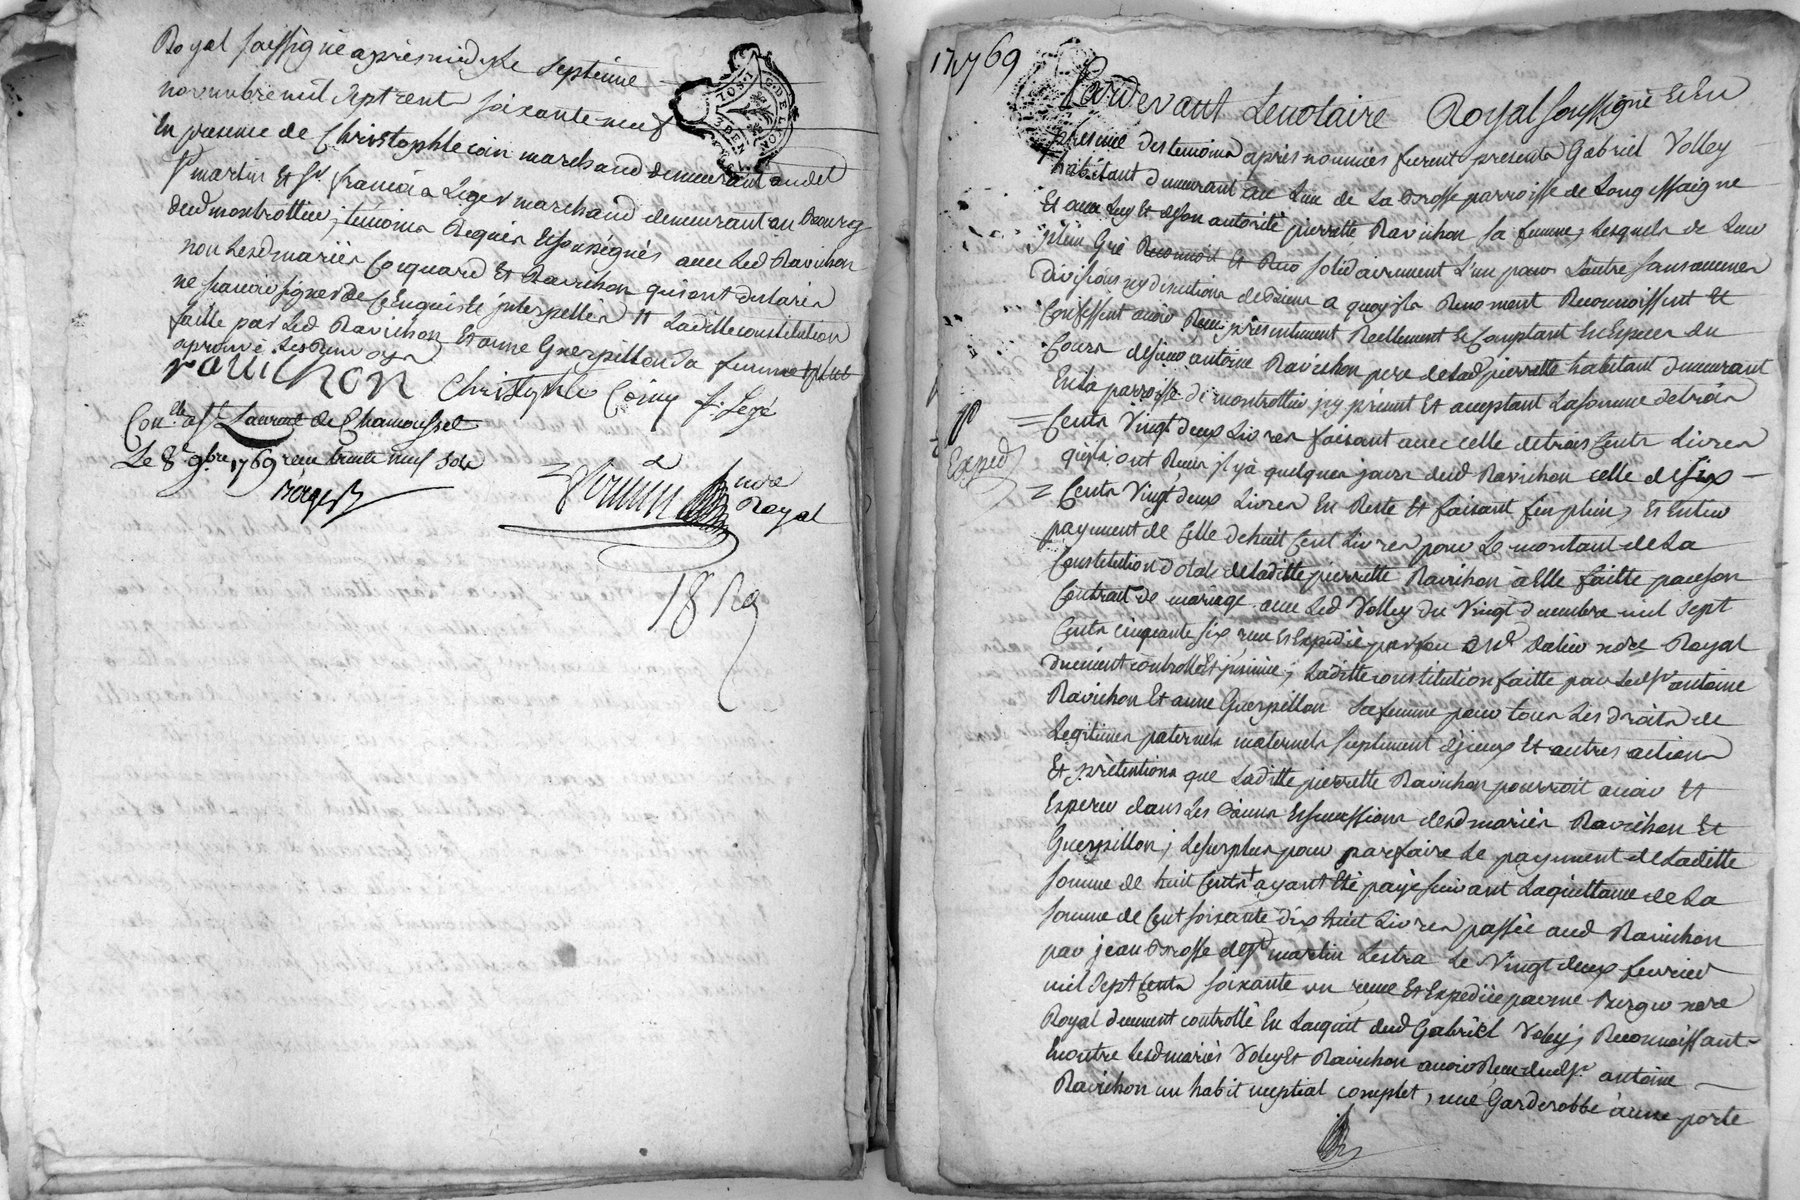 Royal soussigné après midy le septieme
novembre mil sept cent soixante neuf
En presence de Christophle coin marchand demeurant aud
St martin Et Sr francois Leger marchand demeurant au Bourg
dud montrottier, temoins Requis Et soussignés avec Led Ravichon
non Lesd mariés Coquard Et Ravichon qui ont declaré
ne scavoir signer de ce Enquis et interpellés Laditte constitution
faitte par Led Ravichon Et anne Guerpillon sa femme
aprouvé
ravichon Christophle Coiny f. Legé
Conlle a St Laurent de Chamousset
Le 8e 9bre 1769 reçu trente neuf sols
nore
Royal
G. DE LYON
17 1769
Pardevant Le notaire Royal soussigné Et En
presence des temoins apres nommés furent presents Gabriel Volley
habitant demeurant au Lieu de La Brosse parroisse de Longessaigne
Et avec Luy Et de son autorité pierrette Ravichon sa femme, Lesquels de Leur
plein Gré solidairement L'un pour L'autre sans aucunes
divisions ny discutions de Biens a quoy ils Renoncent Reconnoissent Et
Confessent avoir Reçu presentement Reellement Et Comptant En Especes du
Cours de sieur antoine Ravichon pere de Lad pierrette habitant demeurant
En La parroisse de montrottier, icy present Et acceptant La somme de trois
Exped
Cents Vingt deux Livres faisant avec celle de trois Cents Livres
qu'ils ont Reçu il y a quelques jours dud Ravichon celle de six
Cents Vingt deux Livres En Reste Et faisant fin plein, Et Entier
payement de Celle de huit Cent Livres pour Le montant de La
Constitution dotale de Laditte pierrette Ravichon a Elle faitte par son
Contrat de mariage avec Led Volley du Vingt decembre mil sept
Cents cinquante six reçu Et Expedié par feu nore Royal
duement controllé Et insinué; Laditte constitution faitte par Led Sr antoine
Ravichon Et anne Guerpillon sa femme pour tous Les droits de
Legitimes paternels maternels suplement d'iceux Et autres actions
Et prétentions que Laditte pierrette Ravichon pourroit avoir Et
Esperer dans Les Biens Et successions desd mariés Ravichon Et
Guerpillon; Le surplus pour parfaire Le payement de Laditte
somme de huit Cents ayant Eté payé suivant La quittance de La
somme de Cent soixante dix huit Livres passée aud Ravichon
par jean Brosse de St martin Lestra Le Vingt deux fevrier
mil sept Cents soixante un reçue Et Expediée par me nore
Royal duement controllé En L'acquit dud Gabriel Voley; Reconnoissant
En outre Lesd mariés Voley Et Ravichon avoir Reçu dud Sr antoine
Ravichon un habit nuptial complet, une Garderobbe a une porte